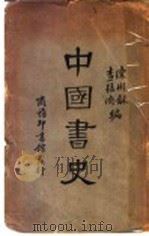 陳彬龢
查猛濟 編
中國書史
商務印書館發行